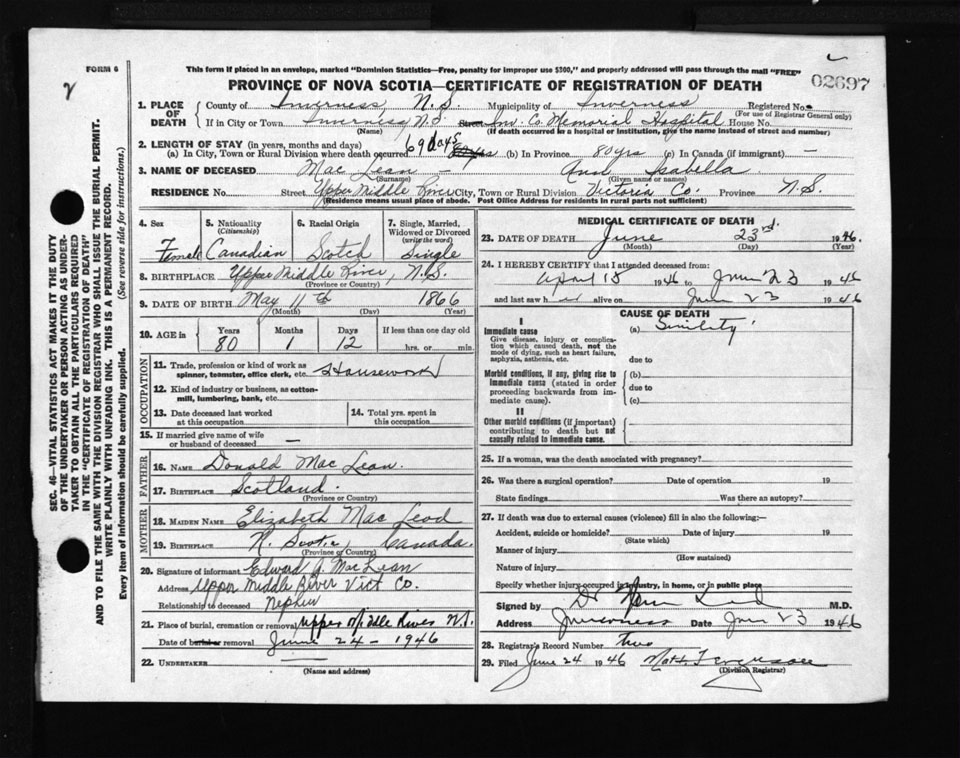 FORM 6
This form if placed in an envelope, marked "Dominion Statistics—Free, penalty for improper use $300," and properly addressed will pass through the mail "FREE"
PROVINCE OF NOVA SCOTIA—CERTIFICATE OF REGISTRATION OF DEATH
02697
1. PLACE OF DEATH County of Inverness N.S. Municipality of Inverness Registered No.
(For use of Registrar General only)
If in City or Town Inverness N.S. Street Inv. Co. Memorial Hospital House No.
(Name) (If death occurred in a hospital or institution, give the name instead of street and number)
2. LENGTH OF STAY (in years, months and days)
(a) In City, Town or Rural Division where death occurred 69 days (b) In Province 80 yrs (c) In Canada (if immigrant) —
3. NAME OF DECEASED Mac Lean — Ann Isabella
(Surname) (Given name or names)
RESIDENCE No. Street Upper Middle River City, Town or Rural Division Victoria Co. Province N.S.
(Residence means usual place of abode. Post Office Address for residents in rural parts not sufficient)
4. Sex Female
5. Nationality (Citizenship) Canadian
6. Racial Origin Scotch
7. Single, Married, Widowed or Divorced (write the word) Single
8. BIRTHPLACE Upper Middle River, N.S.
(Province or Country)
9. DATE OF BIRTH May 11th 1866
(Month) (Day) (Year)
10. AGE in Years 80 Months 1 Days 12 If less than one day old hrs. or min.
OCCUPATION
11. Trade, profession or kind of work as spinner, teamster, office clerk, etc. Housework
12. Kind of industry or business, as cotton-mill, lumbering, bank, etc.
13. Date deceased last worked at this occupation
14. Total yrs. spent in this occupation
15. If married give name of wife or husband of deceased —
FATHER
16. NAME Donald Mac Lean.
17. BIRTHPLACE Scotland.
(Province or Country)
MOTHER
18. MAIDEN NAME Elizabeth Mac Leod
19. BIRTHPLACE N. Scotia, Canada.
(Province or Country)
20. Signature of informant Edward J. MacLean
Address Upper Middle River Vict Co.
Relationship to deceased Nephew
21. Place of burial, cremation or removal Upper Middle River N.S.
Date of burial or removal June 24 - 1946
22. UNDERTAKER —
(Name and address)
MEDICAL CERTIFICATE OF DEATH
23. DATE OF DEATH June 23rd. 1946.
(Month) (Day) (Year)
24. I HEREBY CERTIFY that I attended deceased from:
April 18 1946 to June 23 1946
and last saw h er alive on June 23 1946
CAUSE OF DEATH
I
Immediate cause (a) Senility
Give disease, injury or complication which caused death, not the mode of dying, such as heart failure, asphyxia, asthenia, etc. due to
Morbid conditions, if any, giving rise to immediate cause (stated in order proceeding backwards from immediate cause). (b) due to (c)
II
Other morbid conditions (if important) contributing to death but not causally related to immediate cause.
25. If a woman, was the death associated with pregnancy?
26. Was there a surgical operation? Date of operation 19
State findings Was there an autopsy?
27. If death was due to external causes (violence) fill in also the following:—
Accident, suicide or homicide? Date of injury 19
(State which)
Manner of injury
(How sustained)
Nature of injury
Specify whether injury occurred in industry, in home, or in public place
Signed by Dr M.D.
Address Inverness Date June 23 1946
28. Registrar's Record Number two
29. Filed June 24 1946 Nath. Ferguson
(Division Registrar)
SEC. 46—VITAL STATISTICS ACT MAKES IT THE DUTY OF THE UNDERTAKER OR PERSON ACTING AS UNDERTAKER TO OBTAIN ALL THE PARTICULARS REQUIRED IN THE "CERTIFICATE OF REGISTRATION OF DEATH" AND TO FILE THE SAME WITH THE DIVISION REGISTRAR WHO SHALL ISSUE THE BURIAL PERMIT.
WRITE PLAINLY WITH UNFADING INK. THIS IS A PERMANENT RECORD.
Every item of information should be carefully supplied. (See reverse side for instructions.)